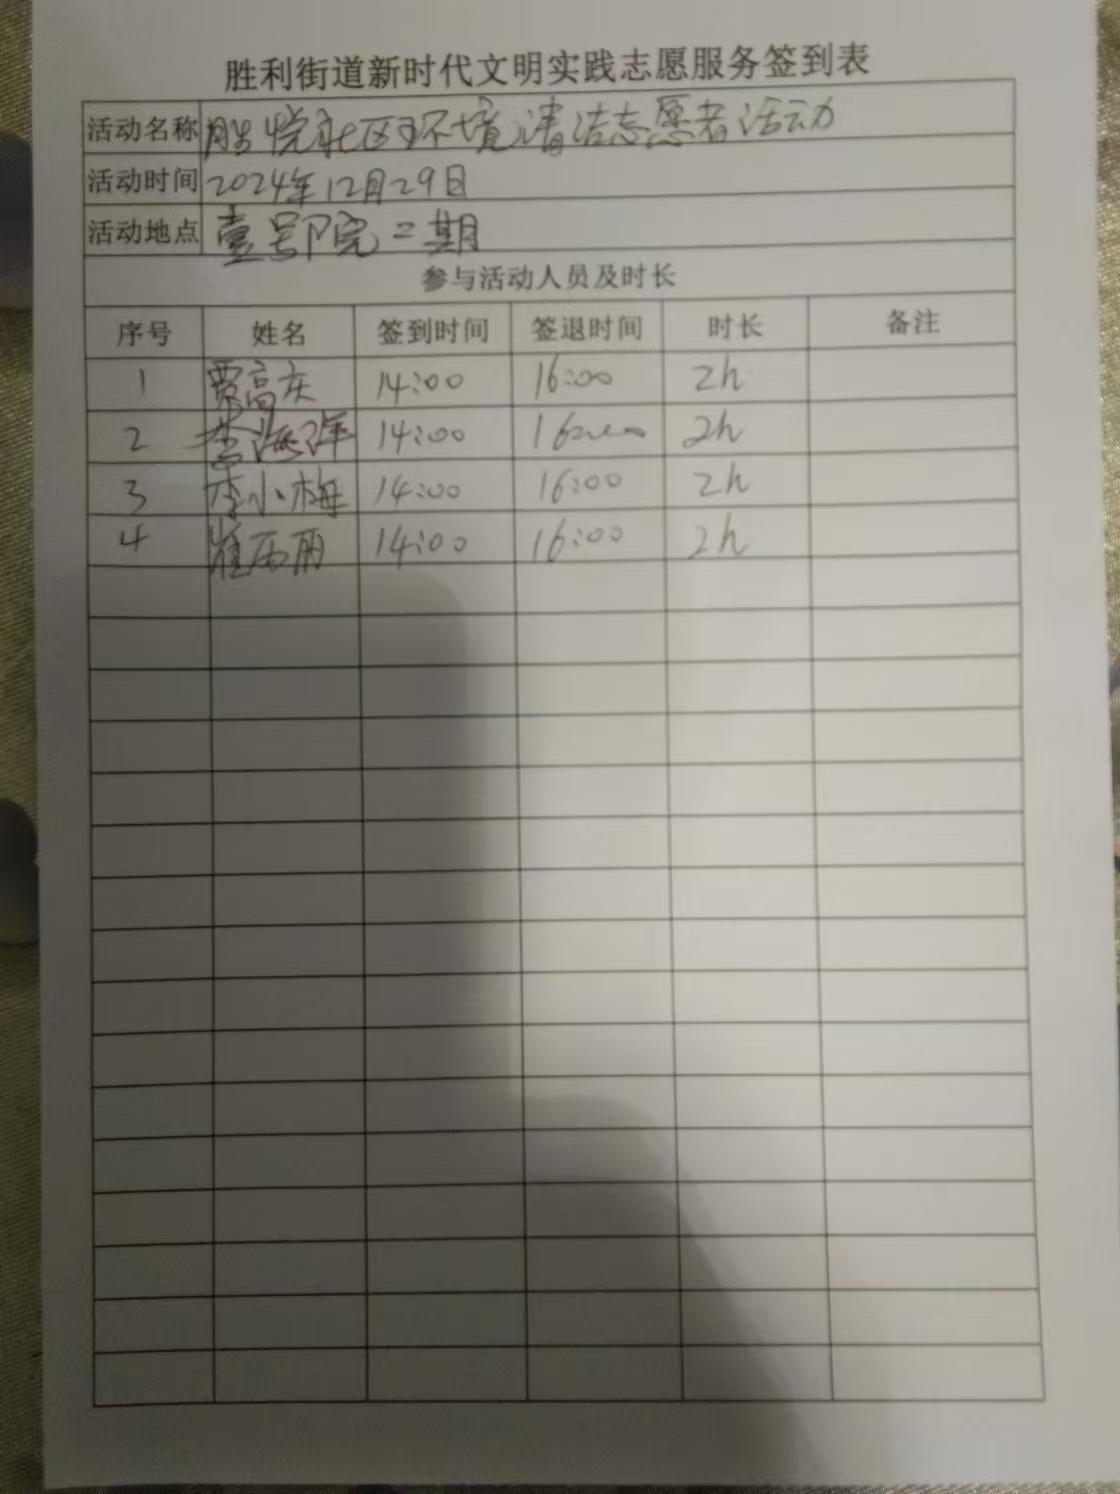 胜利街道新时代文明实践志愿服务签到表
活动名称 胜悦社区环境清洁志愿者活动
活动时间 2024年12月29日
活动地点 壹号院二期
参与活动人员及时长
序号 姓名 签到时间 签退时间 时长 备注
1 贾高 14:00 16:00 2h
2 李海洋 14:00 16:00 2h
3 李小梅 14:00 16:00 2h
4 崔丽 14:00 16:00 2h